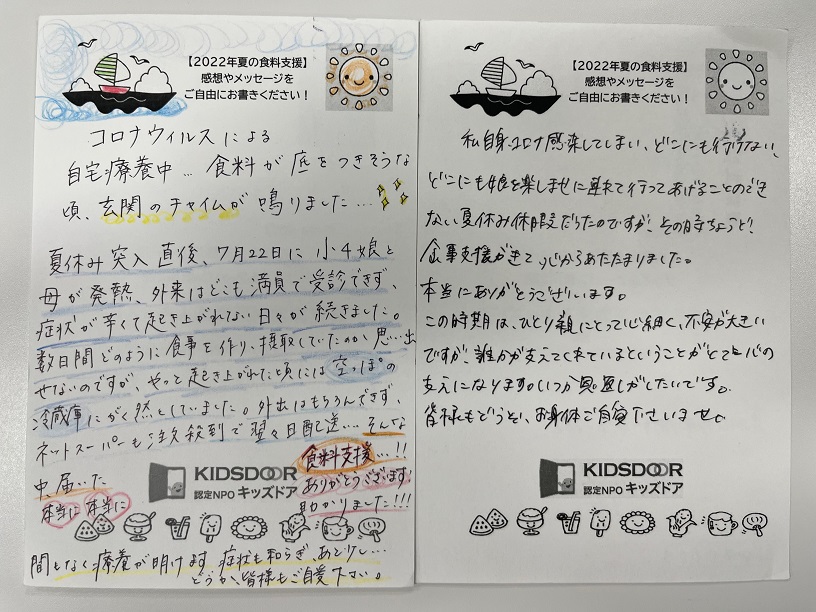 【2022年夏の食料支援】
感想やメッセージを
ご自由にお書きください！
コロナウィルスによる
自宅療養中… 食料が底をつきそうな
頃、玄関のチャイムが鳴りました…
夏休み突入直後、7月22日に小4娘と
母が発熱、外来はどこも満員で受診できず、
症状が辛くて起き上がれない日々が続きました。
数日間どのように食事を作り、摂取していたのか、思い出
せないのですが、やっと起き上がれた頃には空っぽの
冷蔵庫にがく然としていました。外出はもちろんできず、
ネットスーパーも注文殺到で翌々日配送… そんな
中、届いた
食料支援…!!
本当に本当に
ありがとうございます！
助かりました!!!
KIDSDOOR
認定NPO キッズドア
間もなく療養が明けます。症状も和らぎ、あと少し…
どうか、皆様もご自愛下さい。
【2022年夏の食料支援】
感想やメッセージを
ご自由にお書きください！
私自身コロナ感染してしまい、どこにも行けない、
どこにも娘を楽しませに連れて行ってあげることのでき
ない夏休み休暇だったのですが、その時ちょうど！
食事支援がきて、心からあたたまりました。
本当にありがとうございます。
この時期は、ひとり親にとって心細く、不安が大きい
ですが、誰かが支えてくれているということがとても心の
支えになります。いつか恩返しがしたいです。
皆様もどうぞ、お身体ご自愛下さいませ。
KIDSDOOR
認定NPO キッズドア